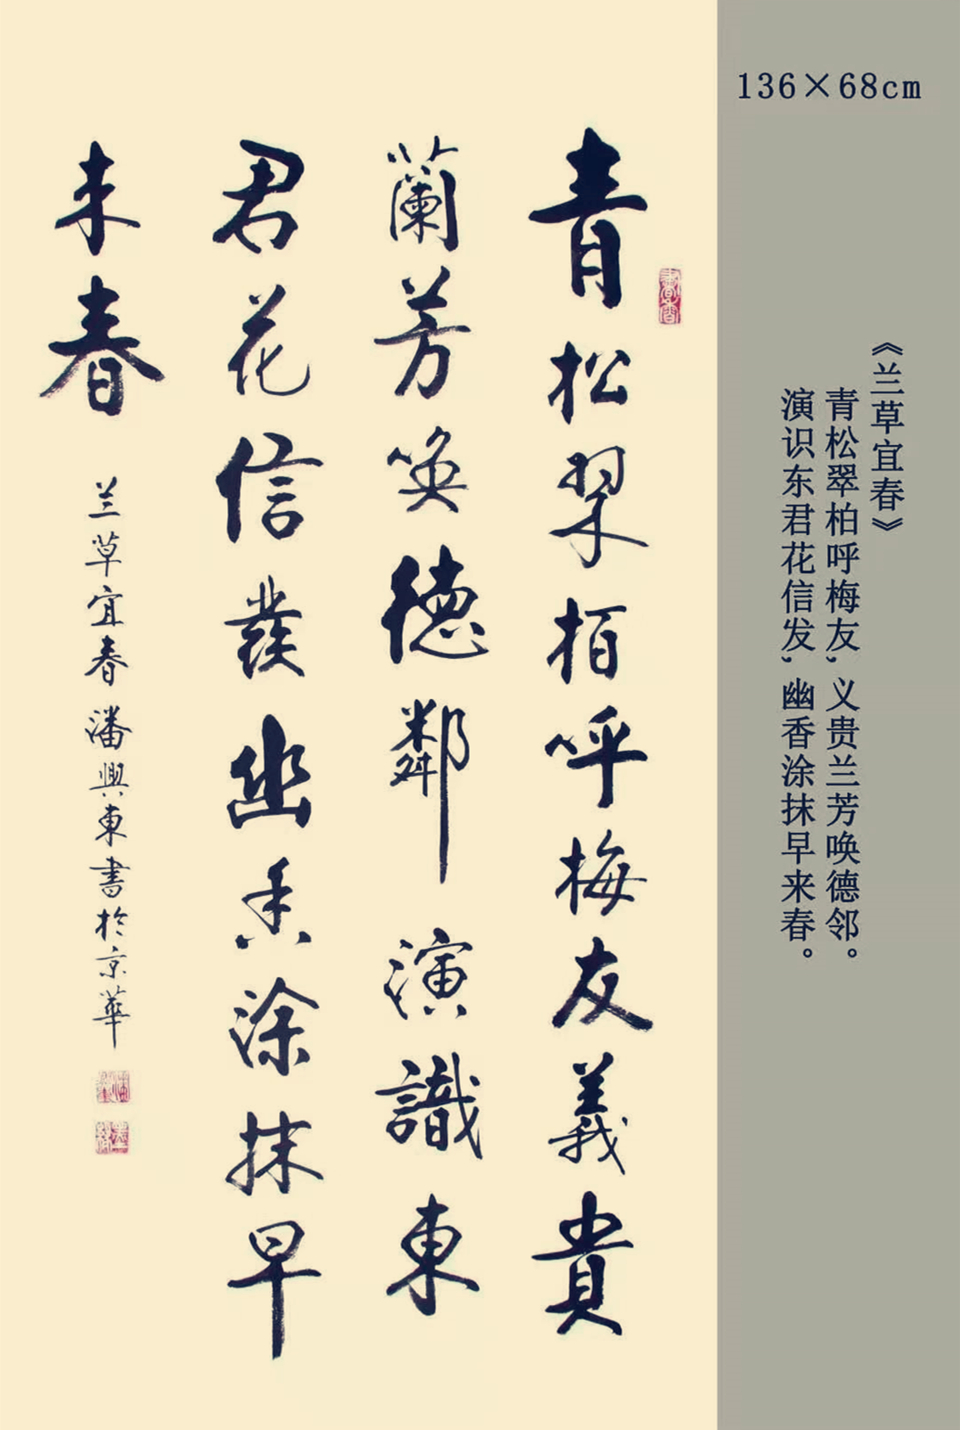 136×68cm
《兰草宜春》
青松翠柏呼梅友，义贵兰芳唤德邻。
演识东君花信发，幽香涂抹早来春。
青松翠栢呼梅友義貴
蘭芳唤德鄰演識東
君花信發幽香涂抹早
来春
兰草宜春潘興東書於京華